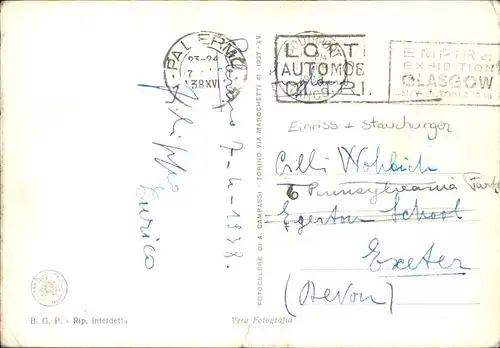 PALERMO
23-24
38 XVI
LOTT
AUTOMOB
DI TRI
EMPIRE
EXHIBITION
GLASGOW
Palermo 7-4-1938.
Filippo
Enrico
FOTOCELERE DI A. CAMPASSI - TORINO VIA MAROCHETTI 41 - 1937 - XV
Einriss + Stauchungen
Cilli Wohbich
6 Pennsylvania Park
Egerton School
Exeter
(Devon)
B. G. P. - Rip. interdetta
Vera Fotografia